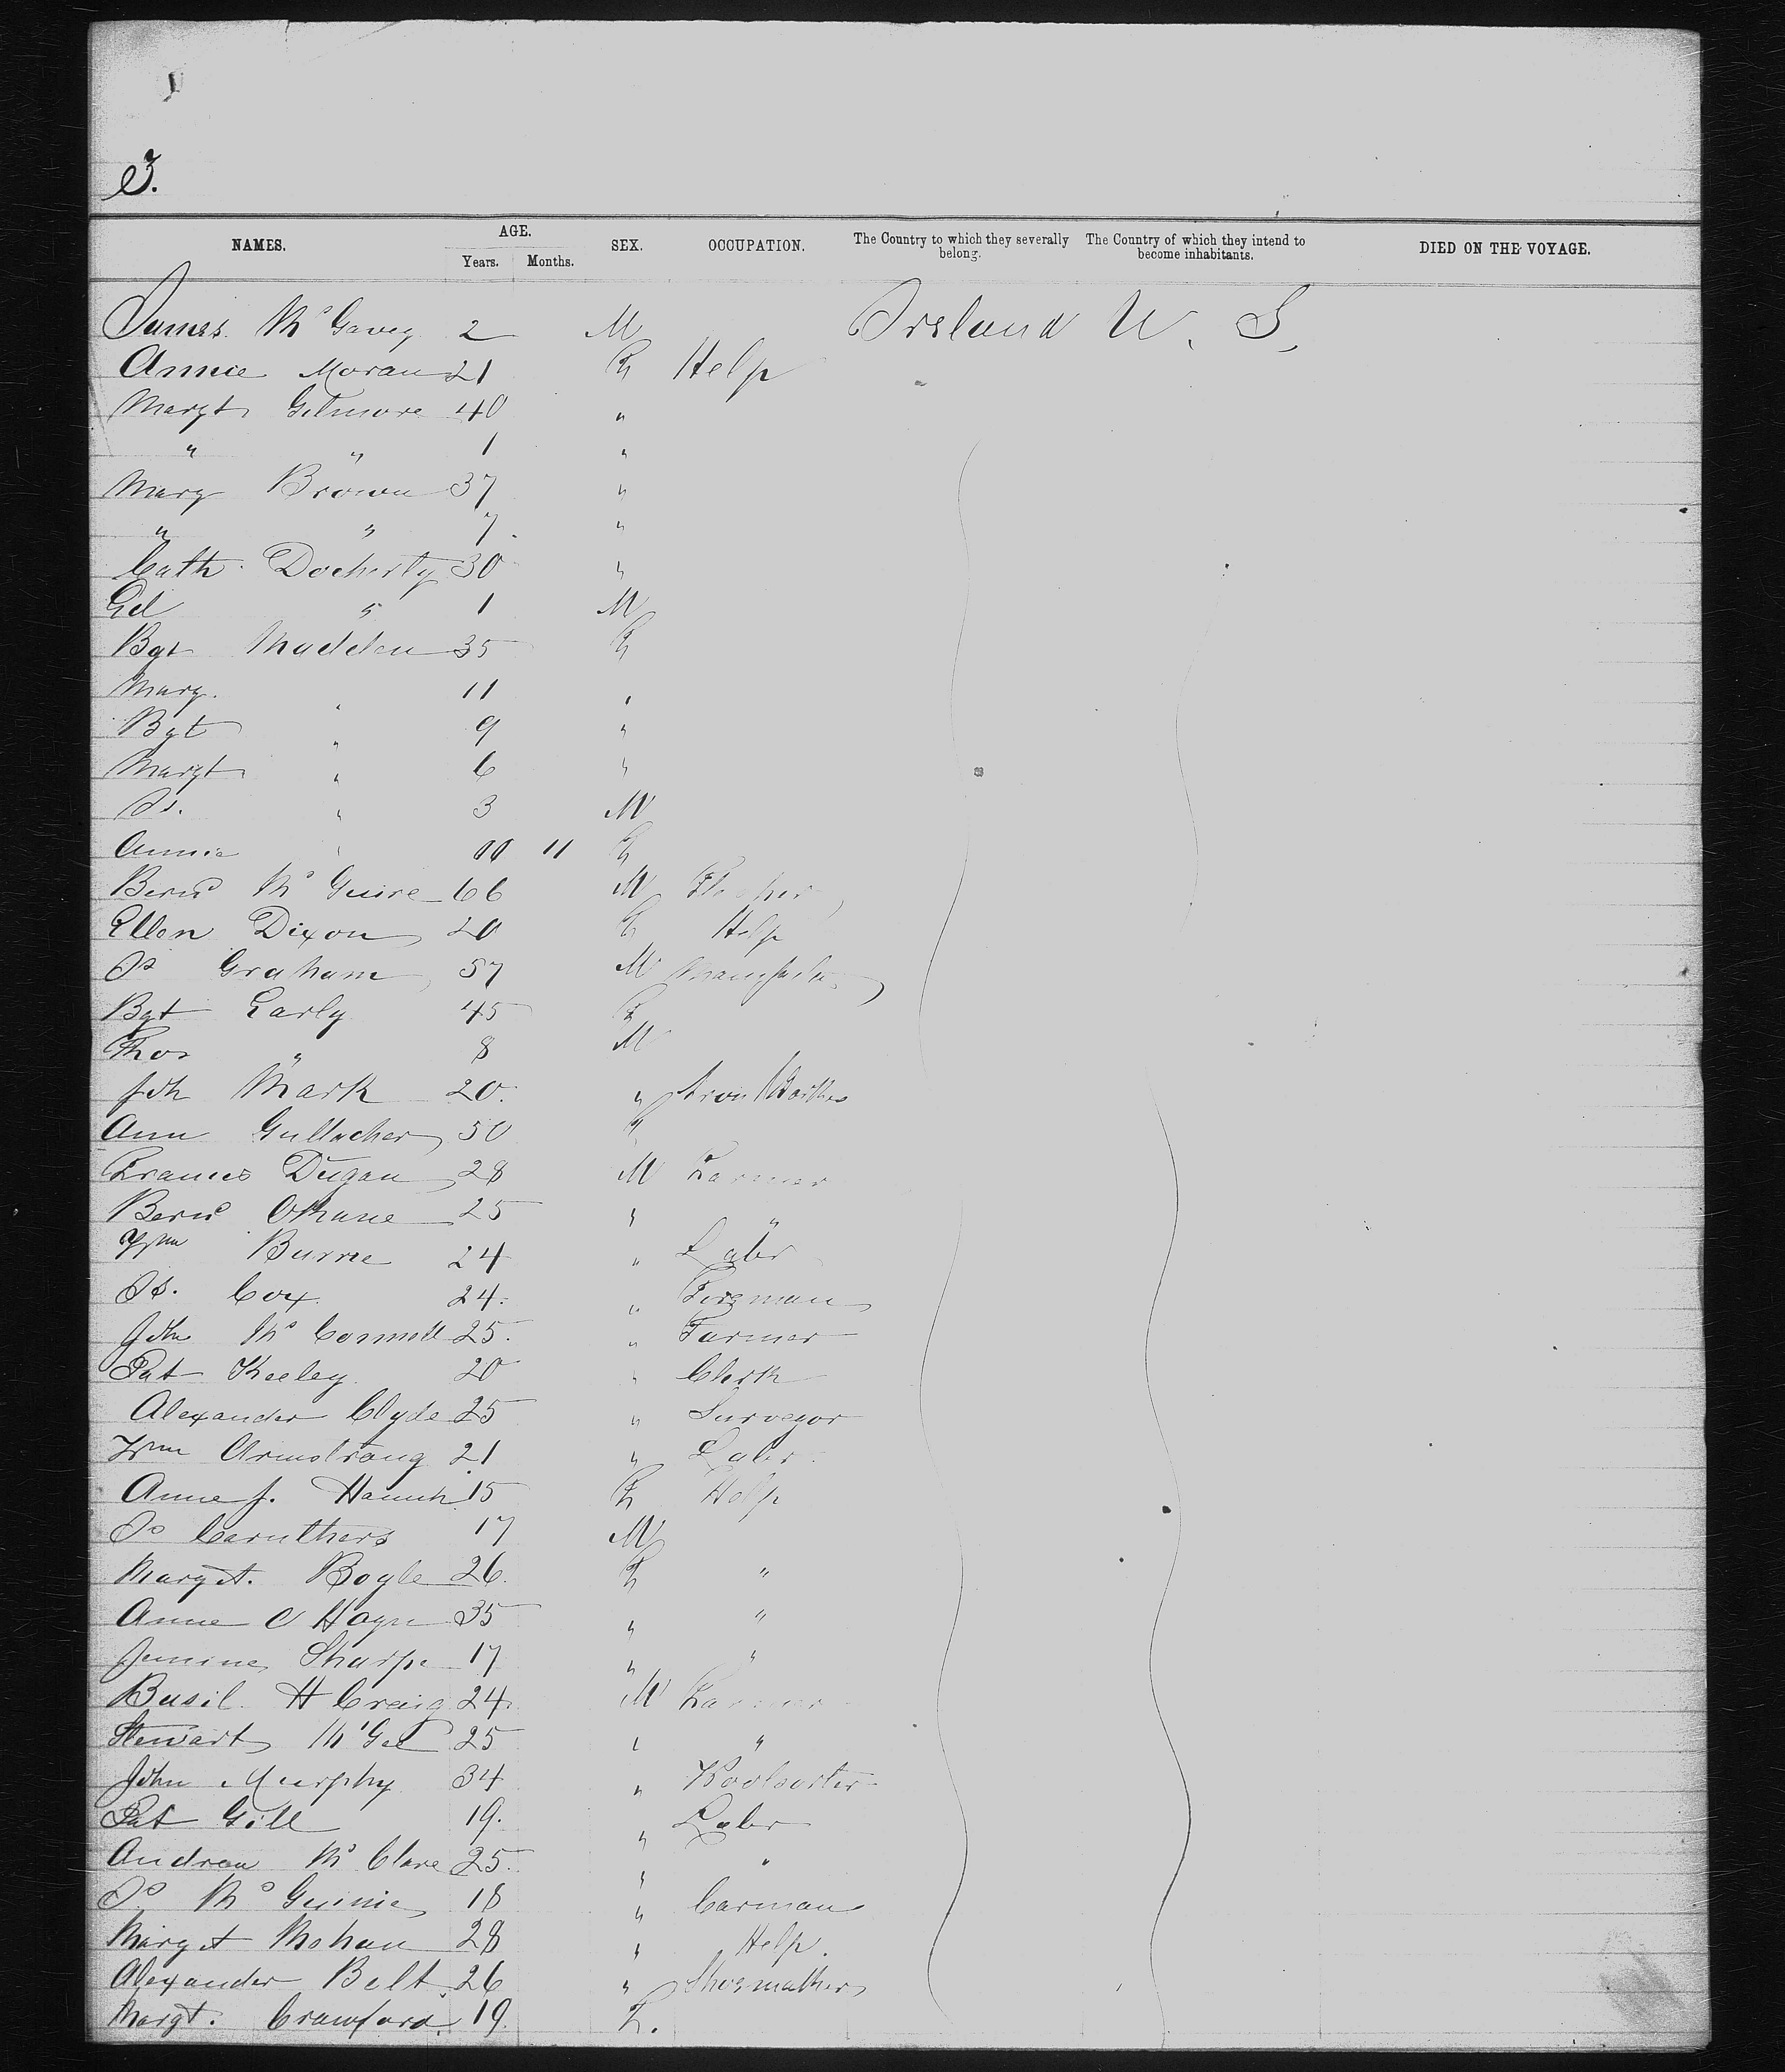 3.
NAMES. AGE. Years. Months. SEX. OCCUPATION. The Country to which they severally belong. The Country of which they intend to become inhabitants. DIED ON THE VOYAGE.
James McGavey 2 M Ireland U. S.
Annie Moran 21 F Help
Margt Gilmore 40 "
" " 1 "
Mary Brown 37 "
" " 7 "
Cath. Docherty 30 "
Ed " 1 M
Bgt Madden 35 F
Mary. " 11 "
Bgt " 9 "
Margt " 6 "
Js. " 3 M
Annie " 00 11 F
Bernd McGuire 66 M
Ellen Dixon 20 F Help
Js Graham 57 M
Bgt Early 45 F
Thos " 8 M
Joh Mark 20. " Iron Worker
Ann Gullacher 50 F
Frances Dugan 28 M Farmer
Bernd OKane 25 " "
Wm Burne 24 " Labr
Js. Cox. 24. " Foreman
John McConnell 25. " Farmer
Pat Keeley 20 " Clerk
Alexander Clyde 25 " Surveyor
Wm Armstrong 21 " Labr.
Anne J. 15 F Help
Js Caruthers 17 M
Marget. Boyle 26. F "
Anne O Hagn 35 " "
Sharpe 17 " "
Basil. H Craig 24. M Farmer
Stewart McGee 25 " "
John Murphy 34 " Woolsorter
Pat Gill 19. " Labr
Andrew McClare 25. " "
Js. McGuinie 18 " Carman
Marget Mohan 28 " Help.
Alexander Belt. 26 " Shoemaker
Margt. Crawford. 19. F.